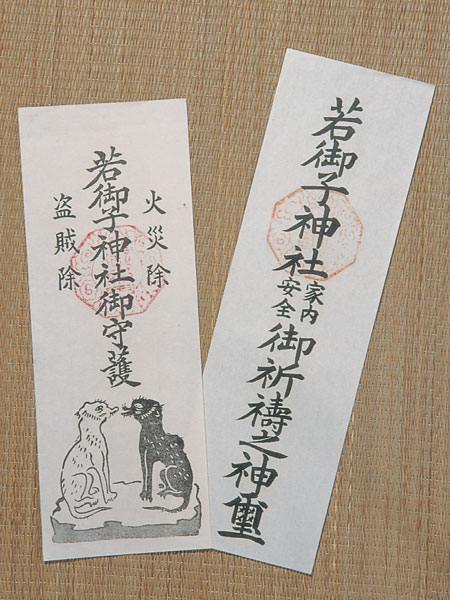 火災除
若御子神社御守護
盗賊除
若御子神社
家内
安全
御祈祷之神璽